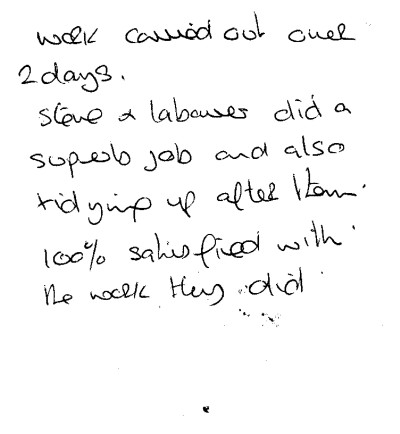 work carried out over
2 days.
Steve & labourer did a
superb job and also
tidying up after them.
100% satisfied with
the work they did